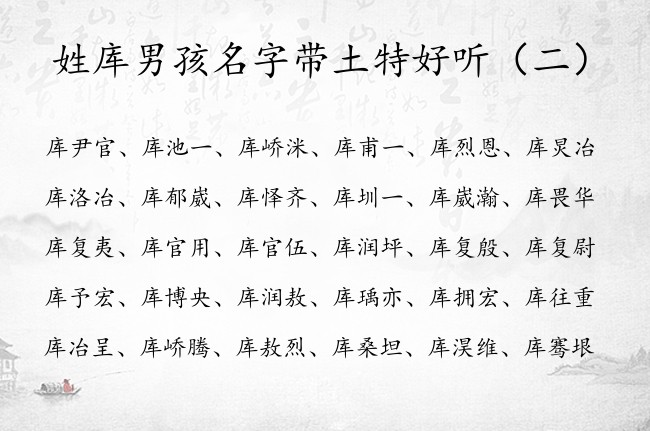 姓库男孩名字带土特好听（二）
库尹官、库池一、库峤洣、库甫一、库烈恩、库炅冶
库洛冶、库郁崴、库怿齐、库圳一、库崴瀚、库畏华
库复夷、库官用、库官伍、库润坪、库复殷、库复尉
库予宏、库博央、库润敖、库瑀亦、库拥宏、库往重
库冶呈、库峤腾、库敖烈、库桑坦、库淏维、库骞垠